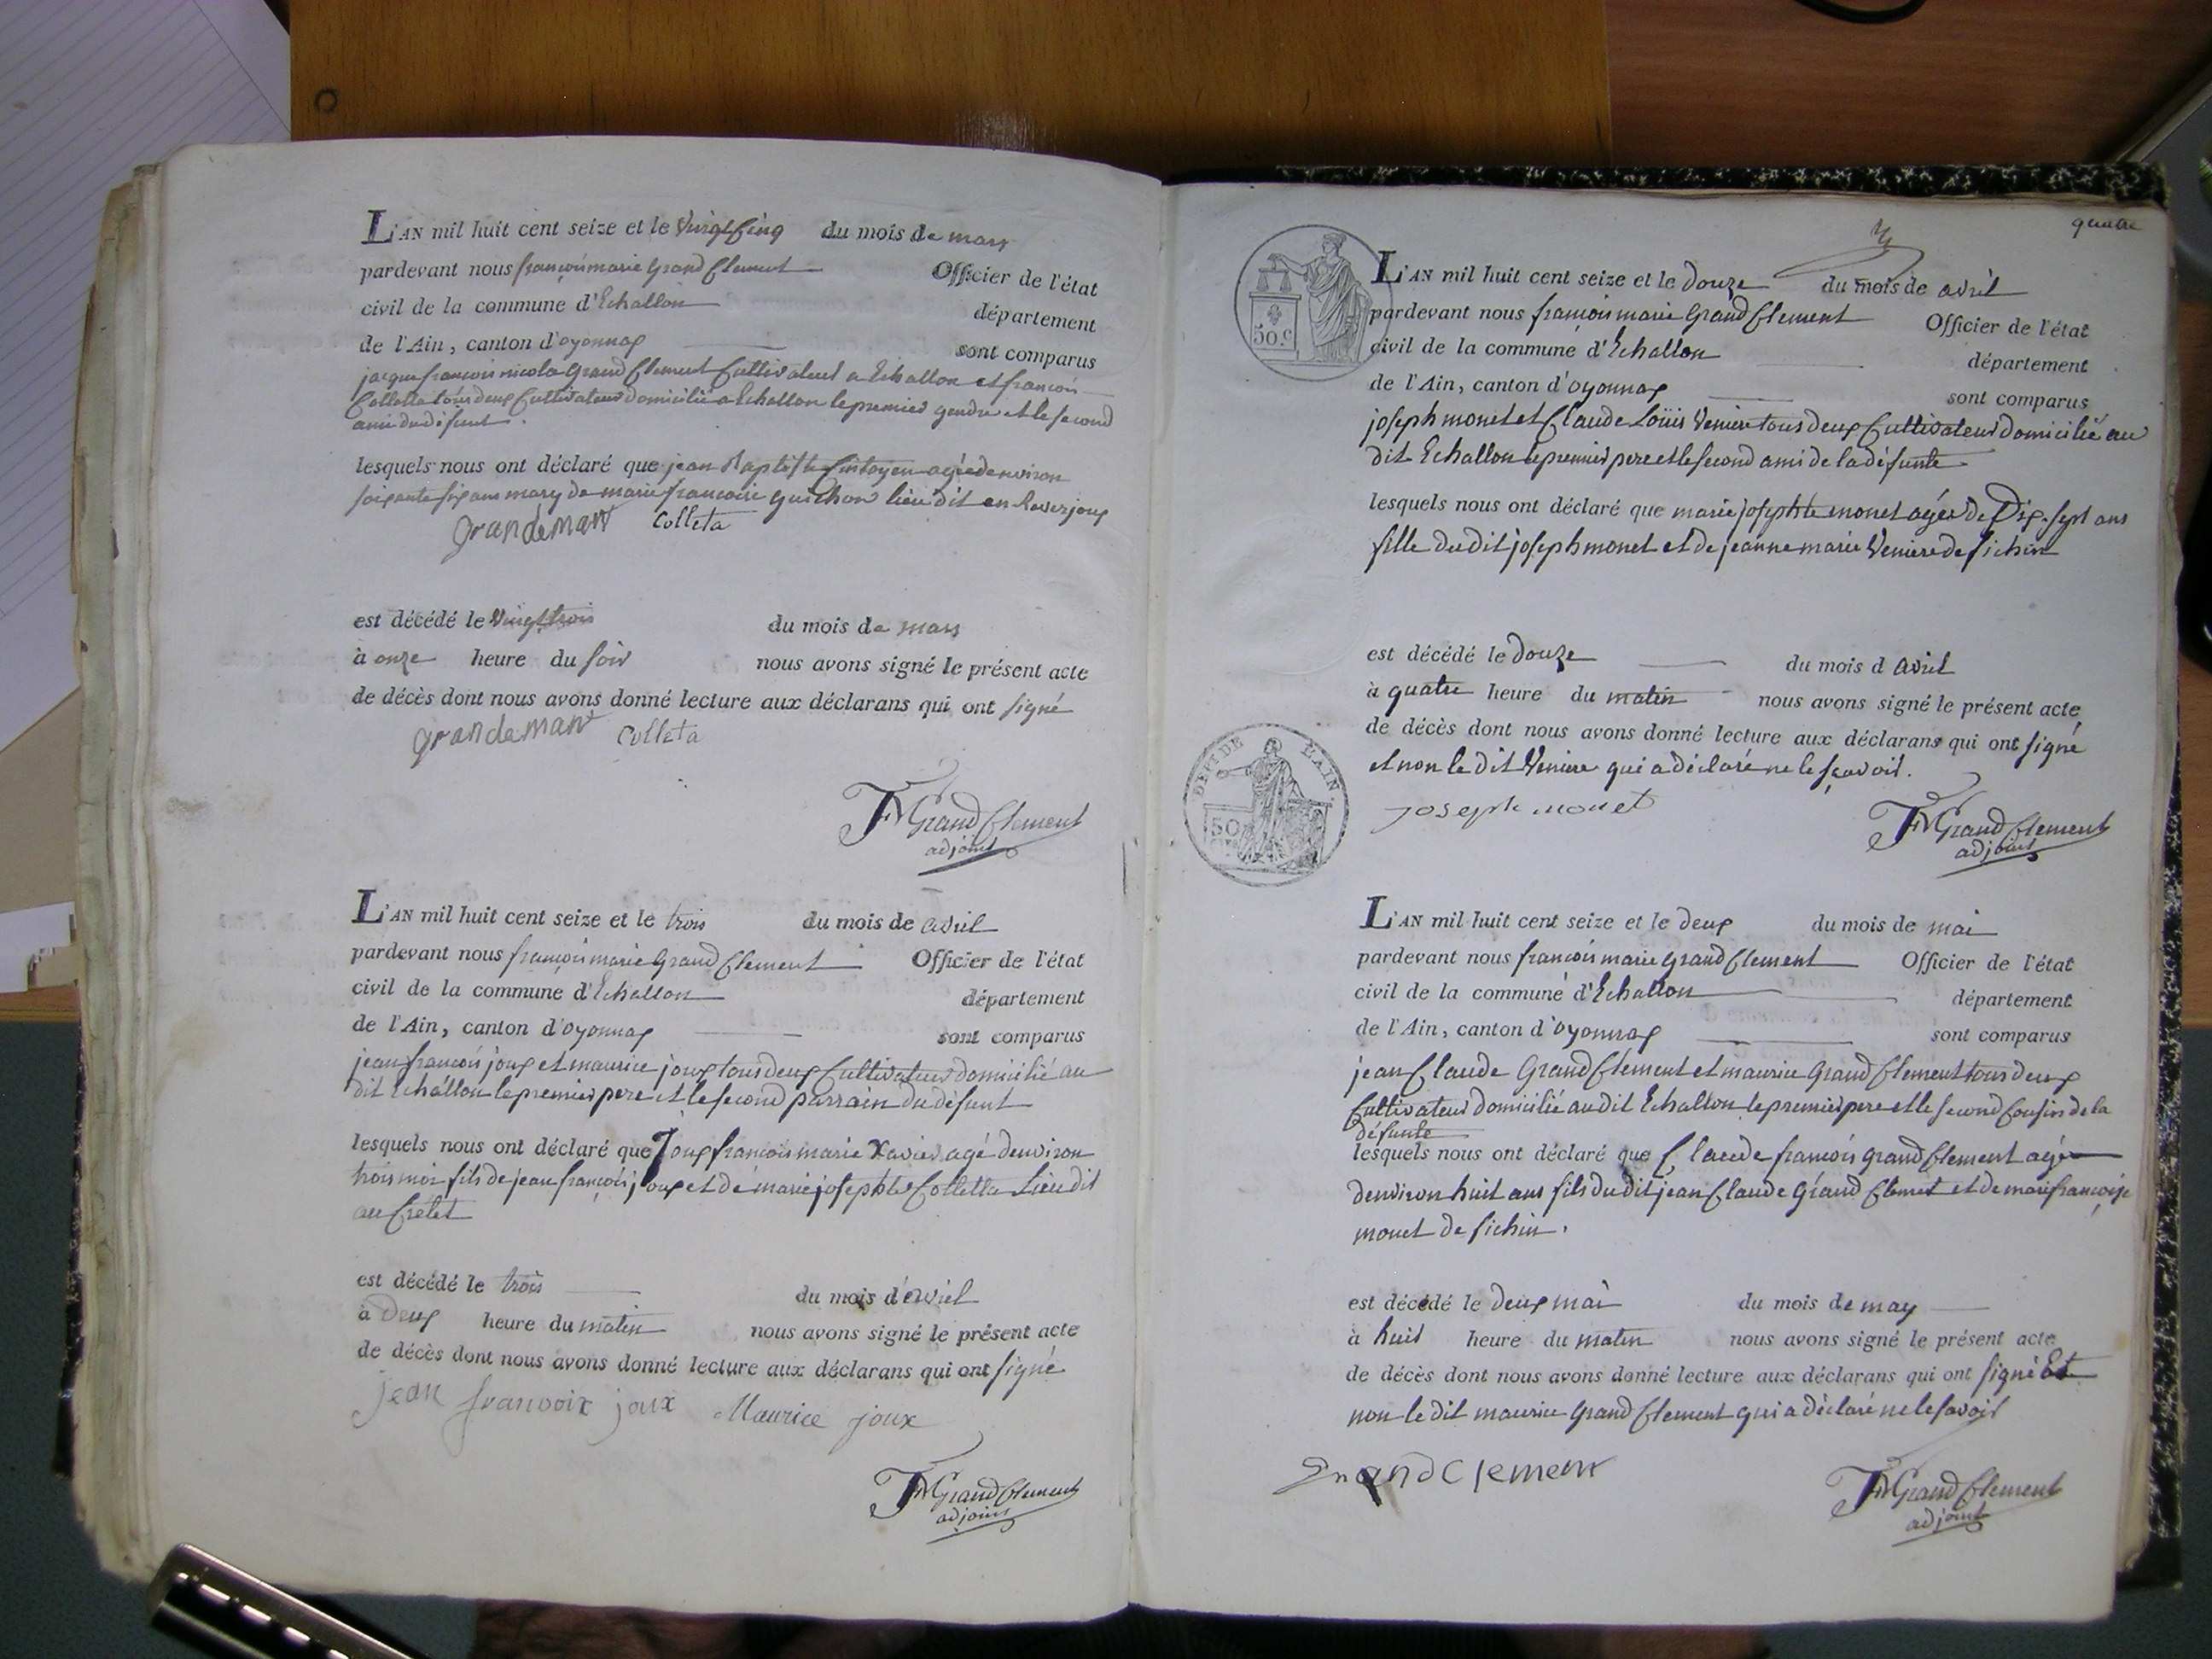 L'AN mil huit cent seize et le vingt cinq du mois de mars
pardevant nous françois marie Grand Clement Officier de l'état
civil de la commune d'Echallon département
de l'Ain, canton d'oyonnax sont comparus
jacque françois nicola Grand Clement Cultivateur a Echallon et françois
Colletta tous deux Cultivateur domicilié a Echallon le premier gendre et le second
ami du défunt.
lesquels nous ont déclaré que jean Baptiste agée denviron
soixante six ans mary de marie francoise guichon lieu dit en
grandemant Colleta
est décédé le vingt trois du mois de mars
à onze heure du soir nous avons signé le présent acte
de décès dont nous avons donné lecture aux déclarans qui ont signé
grandemant Colleta
FM Grand Clement
adjoint
L'AN mil huit cent seize et le trois du mois de avril
pardevant nous françois marie Grand Clement Officier de l'état
civil de la commune d'Echallon département
de l'Ain, canton d'oyonnax sont comparus
jean françois joux et maurice joux tous deux Cultivateur domicilié au
dit Echallon le premier pere et le second parrain du défunt
lesquels nous ont déclaré que Joux françois marie Xavier agé denviron
trois mois fils de jean françois joux et de marie josephte Colletta Lieu dit
au Crétet
est décédé le trois du mois d'avril
à Deux heure du matin nous avons signé le présent acte
de décès dont nous avons donné lecture aux déclarans qui ont signé
jean francoix joux Maurice joux
FM Grand Clement
adjoint
quatre
50.c
L'AN mil huit cent seize et le Douze du mois de avril
pardevant nous françois marie Grand Clement Officier de l'état
civil de la commune d'Echallon département
de l'Ain, canton d'oyonnax sont comparus
joseph monet et Claude Louis Veniere tous deux Cultivateur domicilié au
dit Echallon le premier pere et le second ami de la défunte
lesquels nous ont déclaré que marie josephte monet agée de Dix-sept ans
fille du dit joseph monet et de jeanne marie Veniere de sichin
est décédé le Douze du mois d avril
à quatre heure du matin nous avons signé le présent acte
de décès dont nous avons donné lecture aux déclarans qui ont signé
et non le dit Veniere qui a déclaré ne le sçavoir.
DEPT DE L'AIN
50
joseph monet
FM Grand Clement
adjoint
L'AN mil huit cent seize et le deux du mois de mai
pardevant nous françois marie Grand Clement Officier de l'état
civil de la commune d'Echallon département
de l'Ain, canton d'oyonnax sont comparus
jean Claude Grand Clement et maurice Grand Clement tous deux
Cultivateur domicilié au dit Echallon le premier pere et le second Cousin de la
défunte
lesquels nous ont déclaré que Claude françois Grand Clement agée
denviron huit ans fils du dit jean Claude Grand Clemet et de marie françoise
monet de sichin.
est décédé le deux mai du mois de may
à huit heure du matin nous avons signé le présent acte
de décès dont nous avons donné lecture aux déclarans qui ont signé Et
non le dit maurice Grand Clement qui a déclaré ne le savoir
GrandClement
FM Grand Clement
adjoint